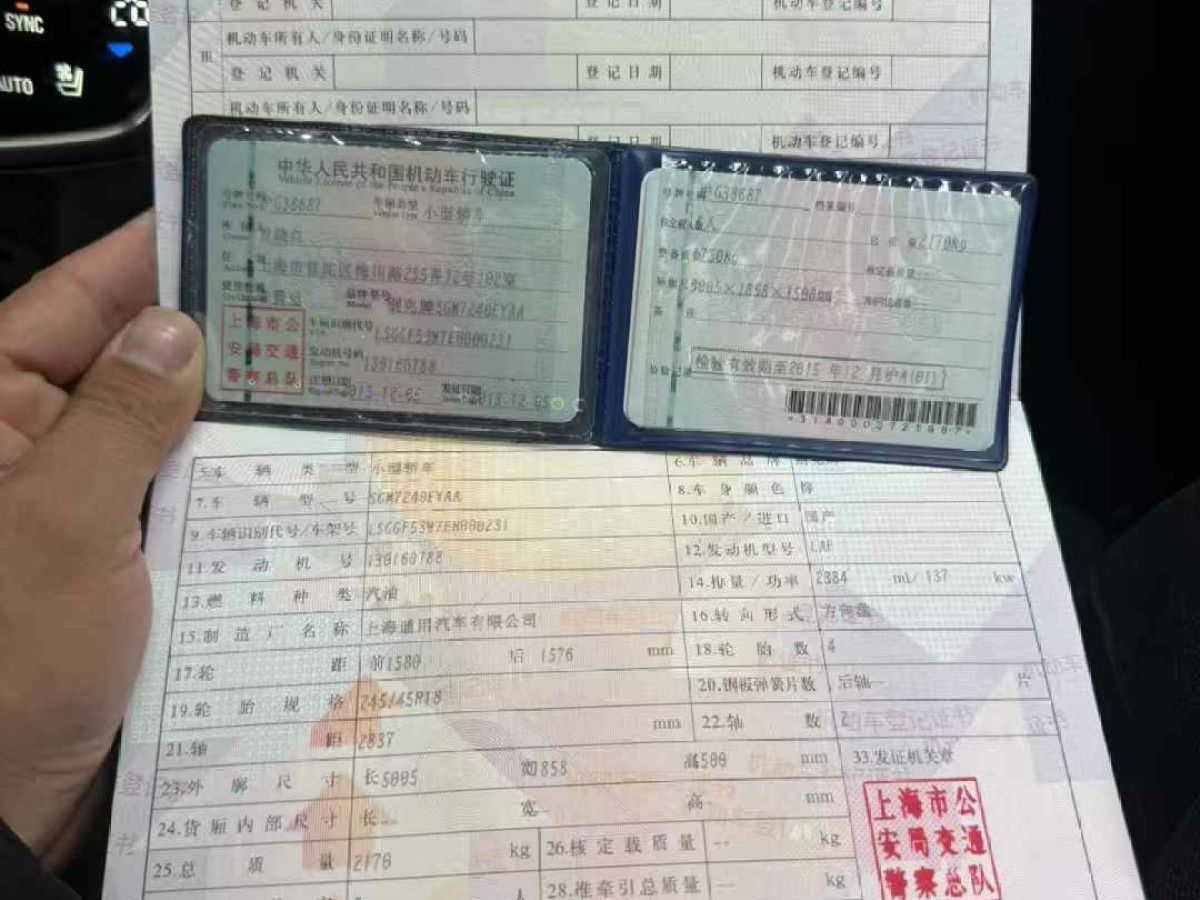 SYNC
AUTO
登记机关 登记日期 机动车登记编号
III 机动车所有人/身份证明名称/号码
登记机关 登记日期 机动车登记编号
机动车所有人/身份证明名称/号码
登记日期 机动车登记编号
中华人民共和国机动车行驶证
Vehicle License of the People's Republic of China
G38687 车辆类型 小型轿车
Vehicle Type
上海市普陀区梅川路255弄12号102室
品牌型号 别克牌SGM7240EYAA
Model
车辆识别代号 LSGGF53W7EH000231
VIN
发动机号码 130160788
Engine No.
注册日期 2013-12-05 发证日期 2013-12-05
上海市公
安局交通
警察总队
G38687 档案编号
总质量 2170kg
核定载质量 --
5005×1858×1500mm
备注
检验有效期至2015年12月沪A(01)
5.车辆类型 小型轿车
6.车辆品牌
7.车辆型号 SGM7240EYAA
8.车身颜色
9.车辆识别代号/车架号 LSGGF53W7EH000231
10.国产/进口 国产
11.发动机号 130160788
12.发动机型号
13.燃料种类 汽油
14.排量/功率 2384 ml/ 137 kw
15.制造厂名称 上海通用汽车有限公司
16.转向形式 方向盘
17.轮距 前1580 后 1576 mm
18.轮胎数 4
19.轮胎规格 245/45R18
20.钢板弹簧片数 后轴-- 片
21.轴距 2837 mm
22.轴数 2
23.外廓尺寸 长5005 宽 高 mm
33.发证机关章
24.货厢内部尺寸 长-- 宽-- 高-- mm
25.总质量 2170 kg
26.核定载质量 -- kg
28.准牵引总质量 -- kg
人
上海市公
安局交通
警察总队